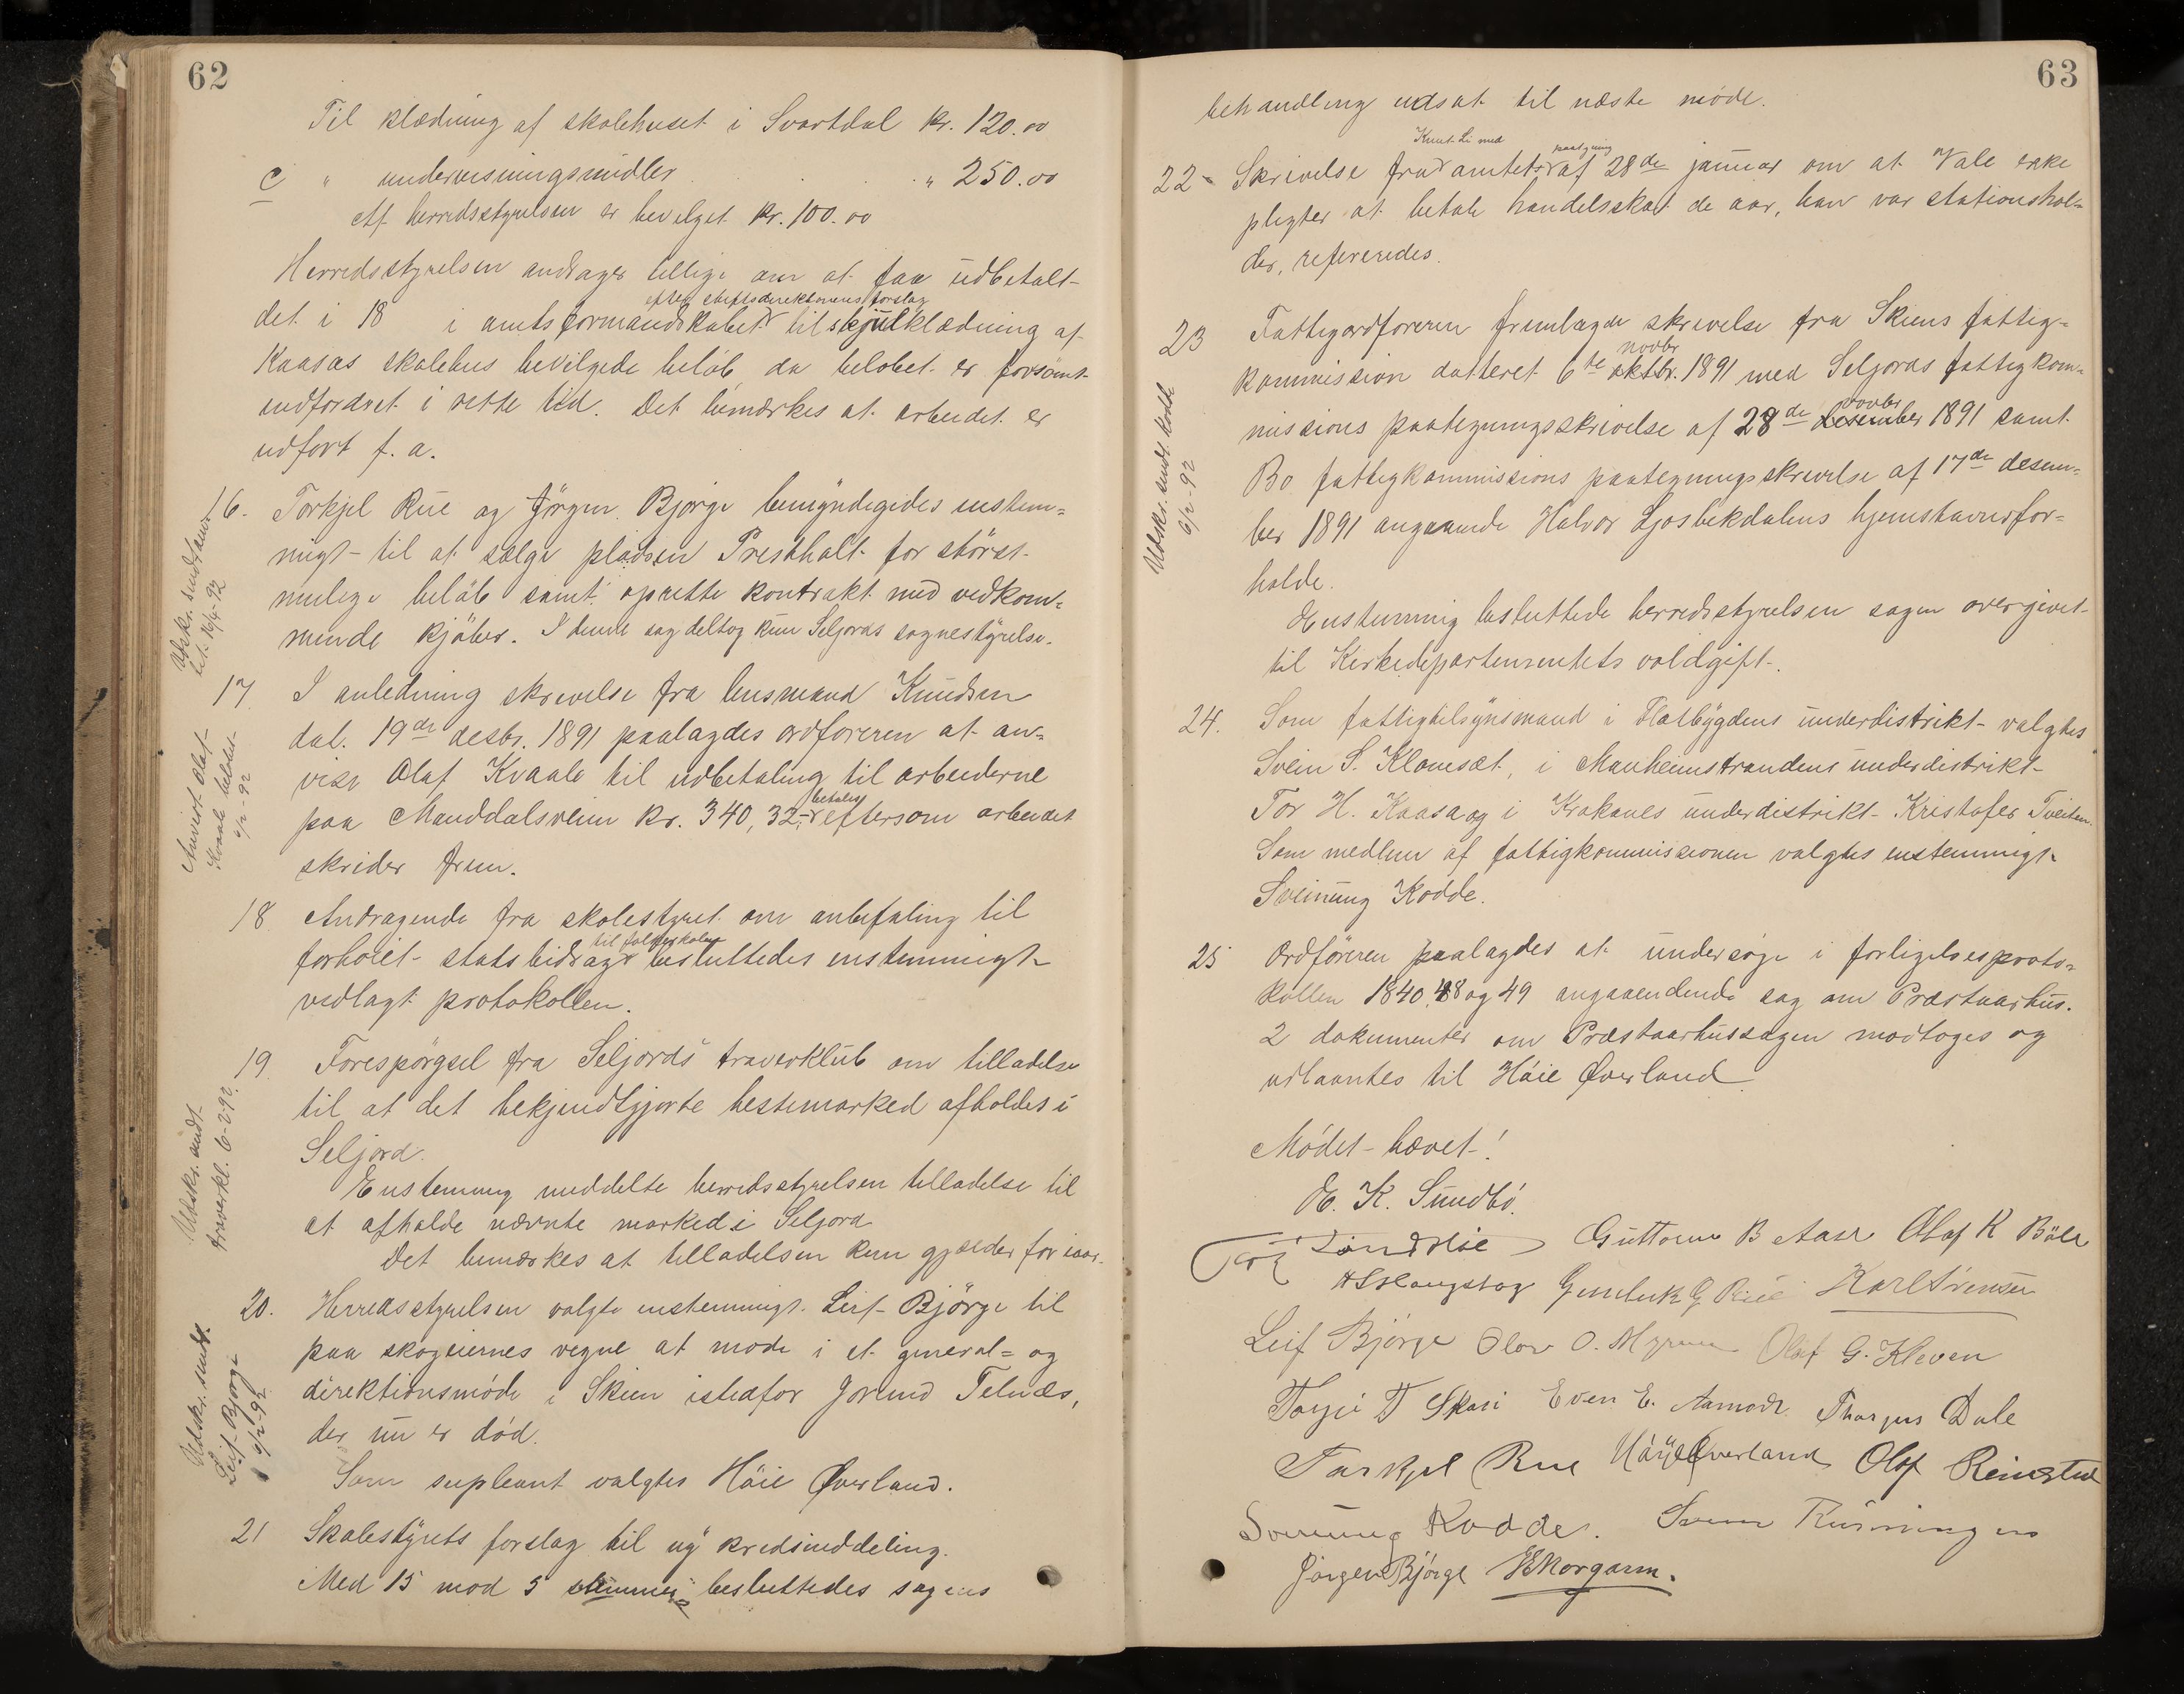 62
Til klædning af skolehuset i Svartdal kr. 120.00
c " undervisningsmidler " 250.00
Af herredsstyrelsen er bevilget kr. 100.00
Herredsstyrelsen andrager tillige om at faa udbetalt
efter skolesdirektörens forslag
det i 18 i amtsformandskabet til skjulklædning af
Kaasas skolehus bevilgede beløb, da belöbet er forsömt
indfordret i rette tid. Det bemærkes at arbeidet er
udfört f. a.
16. Torkjel Rue og Jörgen Bjørge bemyndigedes enstem=
migt til at sælge pladsen Presthalt for störst
mulige belöb samt oprette kontrakt med vedkom=
mende kjöber. I denne sag deltog kun Seljords sognestyrelse.
Udskr. sendt
16/4-92
17. I anledning skrivelse fra lensmand Knudsen
dat. 19de desbr. 1891 paalagdes ordföreren at an=
vise Olaf Kvaale til udbetaling til arbeiderne
betales
paa Manddalsveien kr. 340,32, eftersom arbeidet
skrider frem.
Anvist Olaf
Kvaale beløbet
6/2-92
18. Andragende fra skolestyret om anbefaling til
til folkeskolen
forhöiet statsbidrag besluttedes enstemmigt
vedlagt protokollen.
19 Forespörgsel fra Seljords traverklub om tilladelse
til at det bekjendtgjorte hestemarked afholdes i
Seljord.
Enstemmig meddelte herredsstyrelsen tilladelse til
at afholde nævnte marked i Seljord
Det bemærkes at tilladelsen kun gjælder for iaar.
Udskr. sendt
traverkl. 6-2-92.
20. Herredsstyrelsen valgte enstemmigt Leif Björge til
paa skogeiernes vegne at møde i et general= og
direktionsmöde i Skien istedfor Jorund Telnæs,
der nu er död.
Som supleant valgtes Höie Øverland.
Udskr. sendt.
Leif Bjørge
6/2-92
21 Skolestyrets forslag til ny kredsinddeling.
Med 15 mod 5 stemmer besluttedes sagens
63
behandling udsat til næste möde.
Knut Li med paategning
22 - Skrivelse fra amtet af 28de januar om at Vale ikke
pligter at betale handelsskat de aar, han var stationshol=
der, refereredes.
23 Fattigordföreren fremlagde skrivelse fra Skiens fattig=
novbr
kommission datteret 6te oktbr. 1891 med Seljords fattigkom=
novbr
missions paategningsskrivelse af 28de desember 1891 samt
Bö fattigkommissions paategningsskrivelse af 17de desem=
ber 1891 angaaende Halvor Ljosbekdalens hjemstavnsfor=
holde.
Enstemmig besluttede herredsstyrelsen sagen overgivet
til Kirkedepartementets voldgift.
Udskr. sendt Kodde
6/2-92
24. Som fattigtilsynsmand i Flatbygdens underdistrikt valgtes
Svein S. Klomsæt, i Manheimstrandens underdistrikt
Tor H. Kaasa og i Krakanes underdistrikt Kristofer Tveiten.
Som medlem af fattigkommissionen valgtes enstemmigt
Sveinung Kodde.
25 Ordföreren paalagdes at undersöge i forligelsesproto=
kollen 1840, 48 og 49 angaaendende sag om Præstaarhus.
2 dokumenter om Præstaarhussagen modtoges og
udlaantes til Höie Øverland
Mödet hævet!
K. Sundbö.
Guttorm B Aase Olaf K Böle
H S Haugstog Gunleik G Rue Karl Svensen
Leif Björge Olav O. Myrene Olaf G. Kleven
Torjei T Skori Even E. Aamodt Thorgus Dale
Torkjel Rue Höye Øverland Olaf Reinstul
Sveinung Kodde. Svein Rönningen
Jörgen Björge